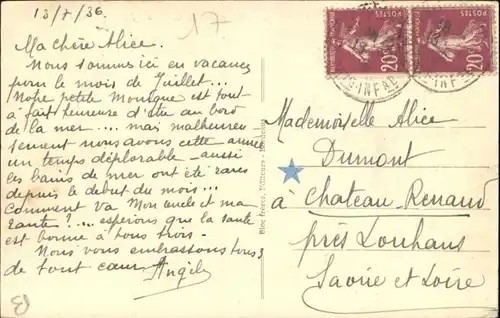 13/7/36
17
Ma chère Alice.
Nous sommes ici en vacances
pour le mois de Juillet...
Notre petite Monique est tout
à fait heureuse d'être au bord
de la mer.... mais malheureu-
sement nous avons cette année
un temps déplorable - aussi
les bains de mer ont été rares
depuis le début du mois...
Comment va Mon oncle et ma
tante?.... espérons que la santé
est bonne à tous trois.
Nous vous embrassons tous 3
de tout cœur Angèle
20c
20c
Mademoiselle Alice
Dumont
à Chateau-Renaud
près Louhans
Saône et Loire